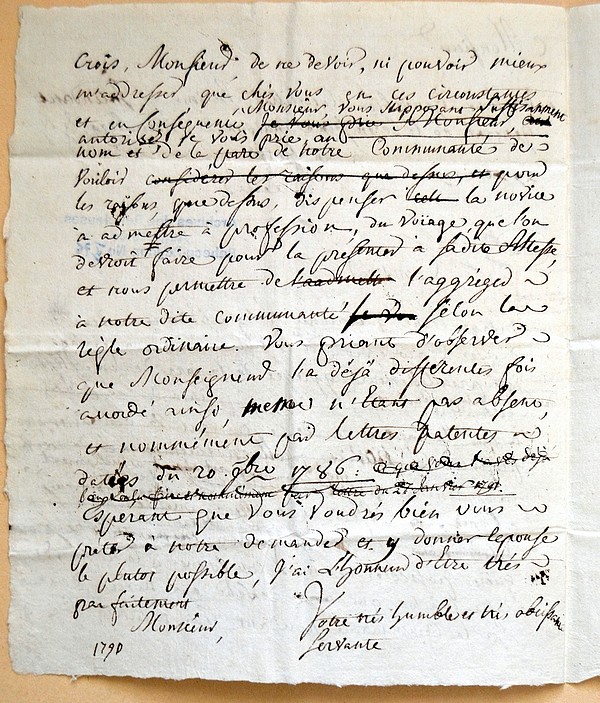 crois, Monsieur de ne devoir, ni pouvoir mieux
m'addresser que chés vous en ces circonstances
Monsieur, vous supposant suffisamment
et en conséquence je vous prie Monsieur,
autorisé je vous prie au
nom et de la part de notre Communauté de
vouloir considerer les raisons que dessus, et pour
les raisons que dessus, dispenser la novice
a admettre à profession, du voiage que l'on
devroit faire pour la présenter a sadite Altesse,
et nous permettre de l'aggréger
à notre dite communauté selon la
règle ordinaire. Vous priant d'observer
que Monseigneur l'a déjà différentes fois
accordé ainsi, meme n'Etant pas absent,
et nommément par lettres patentes
datées du 20 9bre 1786.
par lettre du 27 janvier
Esperant que vous voudrés bien vous
preter à notre demande et y donner reponse
le plutot possible, J'ai L'honneur d'Etre trés
parfaitement
Monsieur,
Votre trés humble et trés obeissante
servante
1790